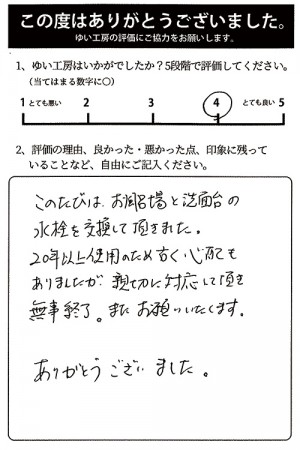 この度はありがとうございました。
ゆい工房の評価にご協力をお願いします。
1、ゆい工房はいかがでしたか？5段階で評価してください。
（当てはまる数字に○）
1 とても悪い 2 3 4 とても良い 5
2、評価の理由、良かった・悪かった点、印象に残って
いることなど、自由にご記入ください。
このたびは、お風呂場と洗面台の
水栓を交換して頂きました。
20年以上使用のため古く心配も
ありましたが、親切に対応して頂き
無事終了。またお願いいたします。
ありがとうございました。